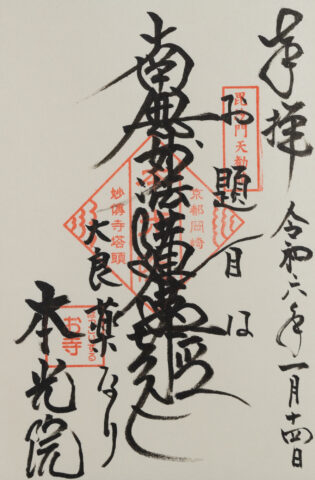 奉拝
令和六年一月十四日
お題目は
南無妙法蓮華経
大良薬なり
本光院
京都岡崎
妙傳寺塔頭
お寺